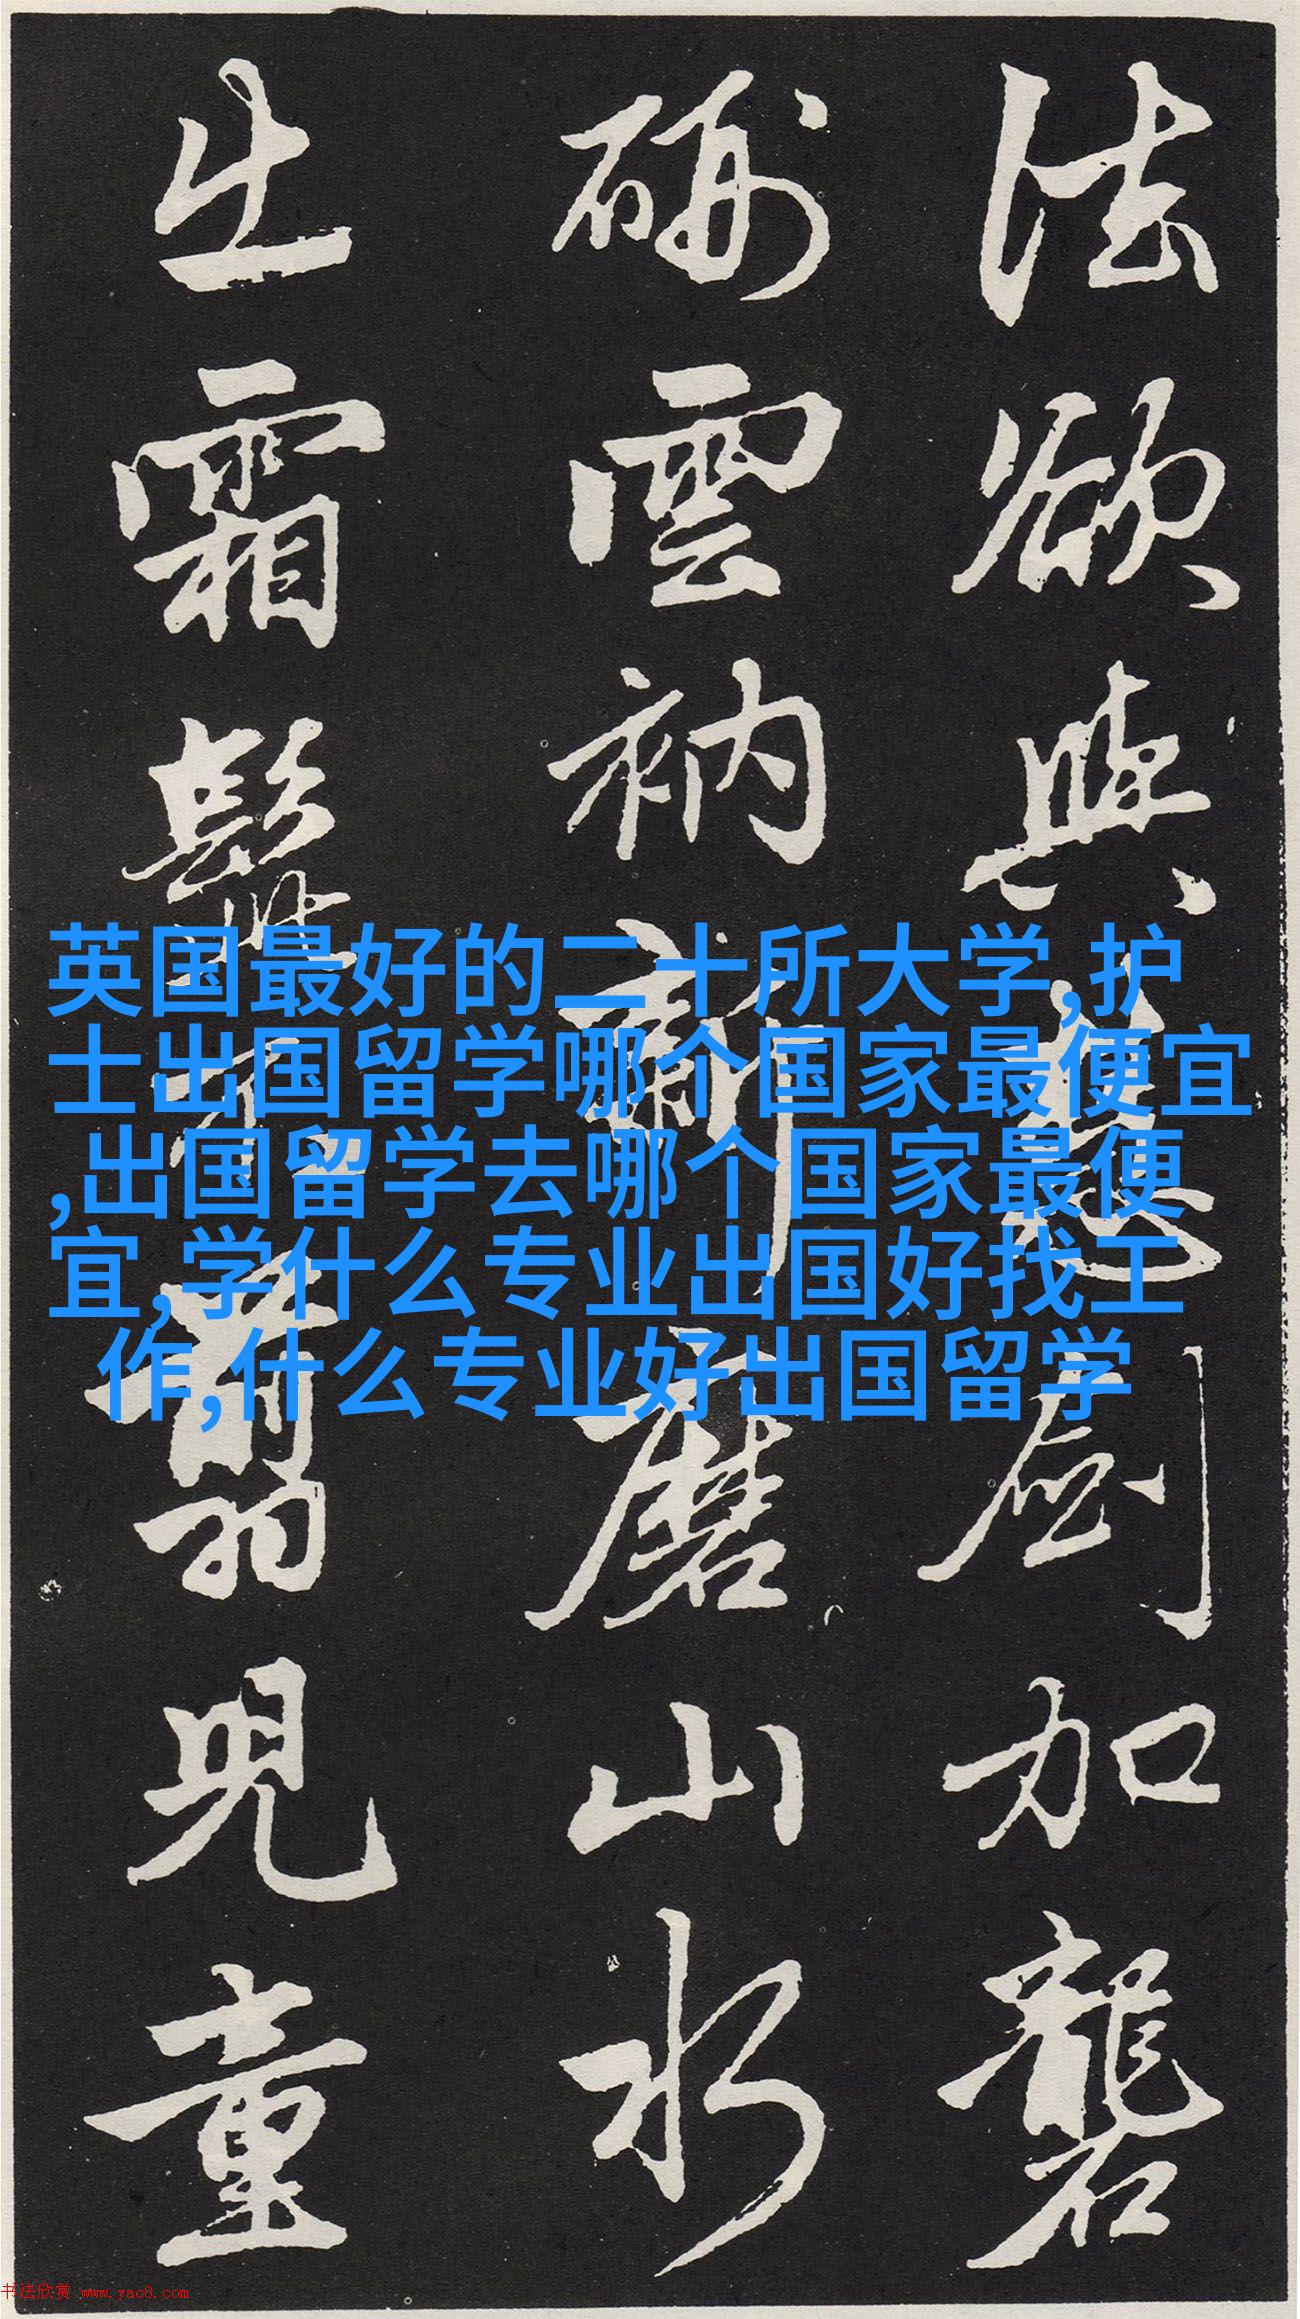 法欲與慧劒加礱
硎雲衲新磨山水
出霜髭不翦兒童
英国最好的二十所大学,护
士出国留学哪个国家最便宜
,出国留学去哪个国家最便
宜,学什么专业出国好找工
作,什么专业好出国留学
书法欣赏 www.yac8.com